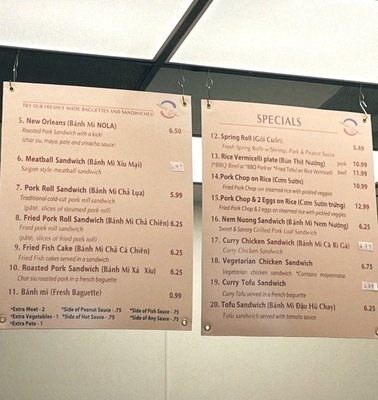 TRY OUR FRESHLY MADE BAGUETTES AND SANDWICHES!
5. New Orleans (Bánh Mì NOLA) 6.50
Roasted Pork Sandwich with a kick!
(char siu, mayo, pate and sriracha sauce)
6. Meatball Sandwich (Bánh Mì Xíu Mại)
Saigon style meatball sandwich
7. Pork Roll Sandwich (Bánh Mì Chả Lụa) 5.99
Traditional cold-cut pork roll sandwich
(pâté, slices of steamed pork roll)
8. Fried Pork Roll Sandwich (Bánh Mì Chả Chiên) 6.25
Fried pork roll sandwich
(pâté, slices of fried pork roll)
9. Fried Fish Cake (Bánh Mì Chả Cá Chiên) 6.25
Fried Fish cakes served in a sandwich
10. Roasted Pork Sandwich (Bánh Mì Xá Xíu) 6.25
Char siu roasted pork in a french baguette
11. Bánh mì (Fresh Baguette) 0.99
*Extra Meat - 2 *Side of Peanut Sauce - .75 *Side of Fish Sauce - .75
*Extra Vegetables - 1 *Side of Hot Sauce - .75 *Side of Any Sauce - .75
*Extra Pate - 1
SPECIALS
12. Spring Roll (Gỏi Cuốn) 5.49
Fresh Spring Rolls w/Shrimp, Pork & Peanut Sauce
13. Rice Vermicelli plate (Bún Thịt Nướng) pork 10.99
*BBQ Beef or *BBQ Pork or *Fried Tofu on Rice Vermicelli beef 11.99
14. Pork Chop on Rice (Cơm Sườn) 10.99
Fried Pork Chop on steamed rice with pickled veggies
15. Pork Chop & 2 Eggs on Rice (Cơm Sườn trứng) 12.99
Fried Pork Chop & 2 eggs on steamed rice with pickled veggies
16. Nem Nuong Sandwich (Bánh Mì Nem Nướng) 6.25
Sweet & Savory Grilled Pork Loaf Sandwich
17. Curry Chicken Sandwich (Bánh Mì Cà Ri Gà)
Curry Chicken Sandwich
18. Vegetarian Chicken Sandwich 6.25
Vegetarian chicken sandwich. *Contains mayonnaise.
19. Curry Tofu Sandwich
Curry Tofu served in a french baguette
20. Tofu Sandwich (Bánh Mì Đậu Hủ Chay) 6.25
Tofu sandwich served with tomato sauce